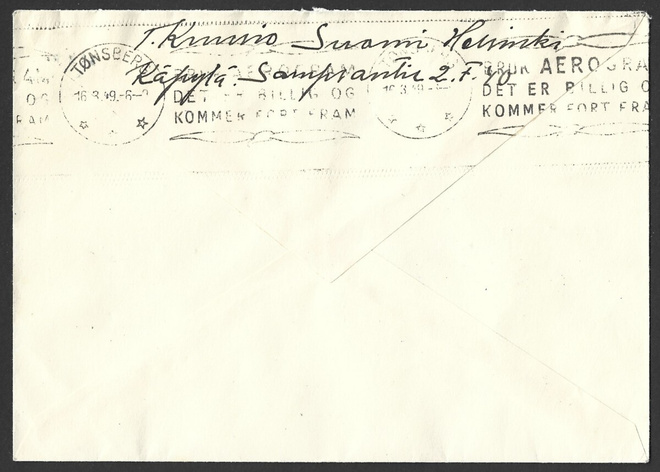 T. Kruuso Suomi Helsinki
Käpylä. Sampsantie 2. F. 40
TØNSBERG
16.3.49.-6-
BRUK AEROGRAM
DET ER BILLIG OG
KOMMER FORT FRAM
16.3.49.
BRUK AEROGRA
DET ER BILLIG O
KOMMER FORT FRA
OG
RAM